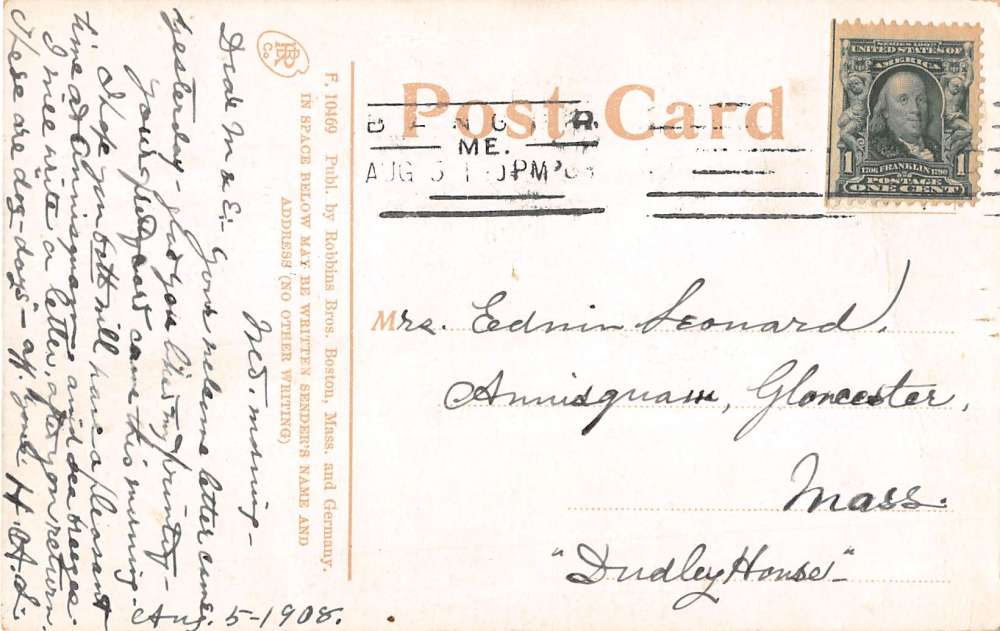 Post Card
BANGOR,
ME.
AUG 5 1 PM '08
SERIES 1902
UNITED STATES OF
AMERICA
1 1
1706 FRANKLIN 1790
POSTAGE
ONE CENT
Mrs. Edwin Leonard,
Annisquam, Gloucester,
Mass.
"Dudley House"
F. 10469 Publ. by Robbins Bros. Boston, Mass. and Germany.
IN SPACE BELOW MAY BE WRITTEN SENDER'S NAME AND
ADDRESS (NO OTHER WRITING)
RB
Co
Wed. morning-
Dear M & E:- Your welcome letter came
yesterday- glad you liked my printing-
your postcard came this morning.
I hope you both will have a pleasant
time at Annisquam and sea breezes.
I will write a letter, after you return.
These are "dog-days"- aff. H. A. L.
Aug. 5-1908.